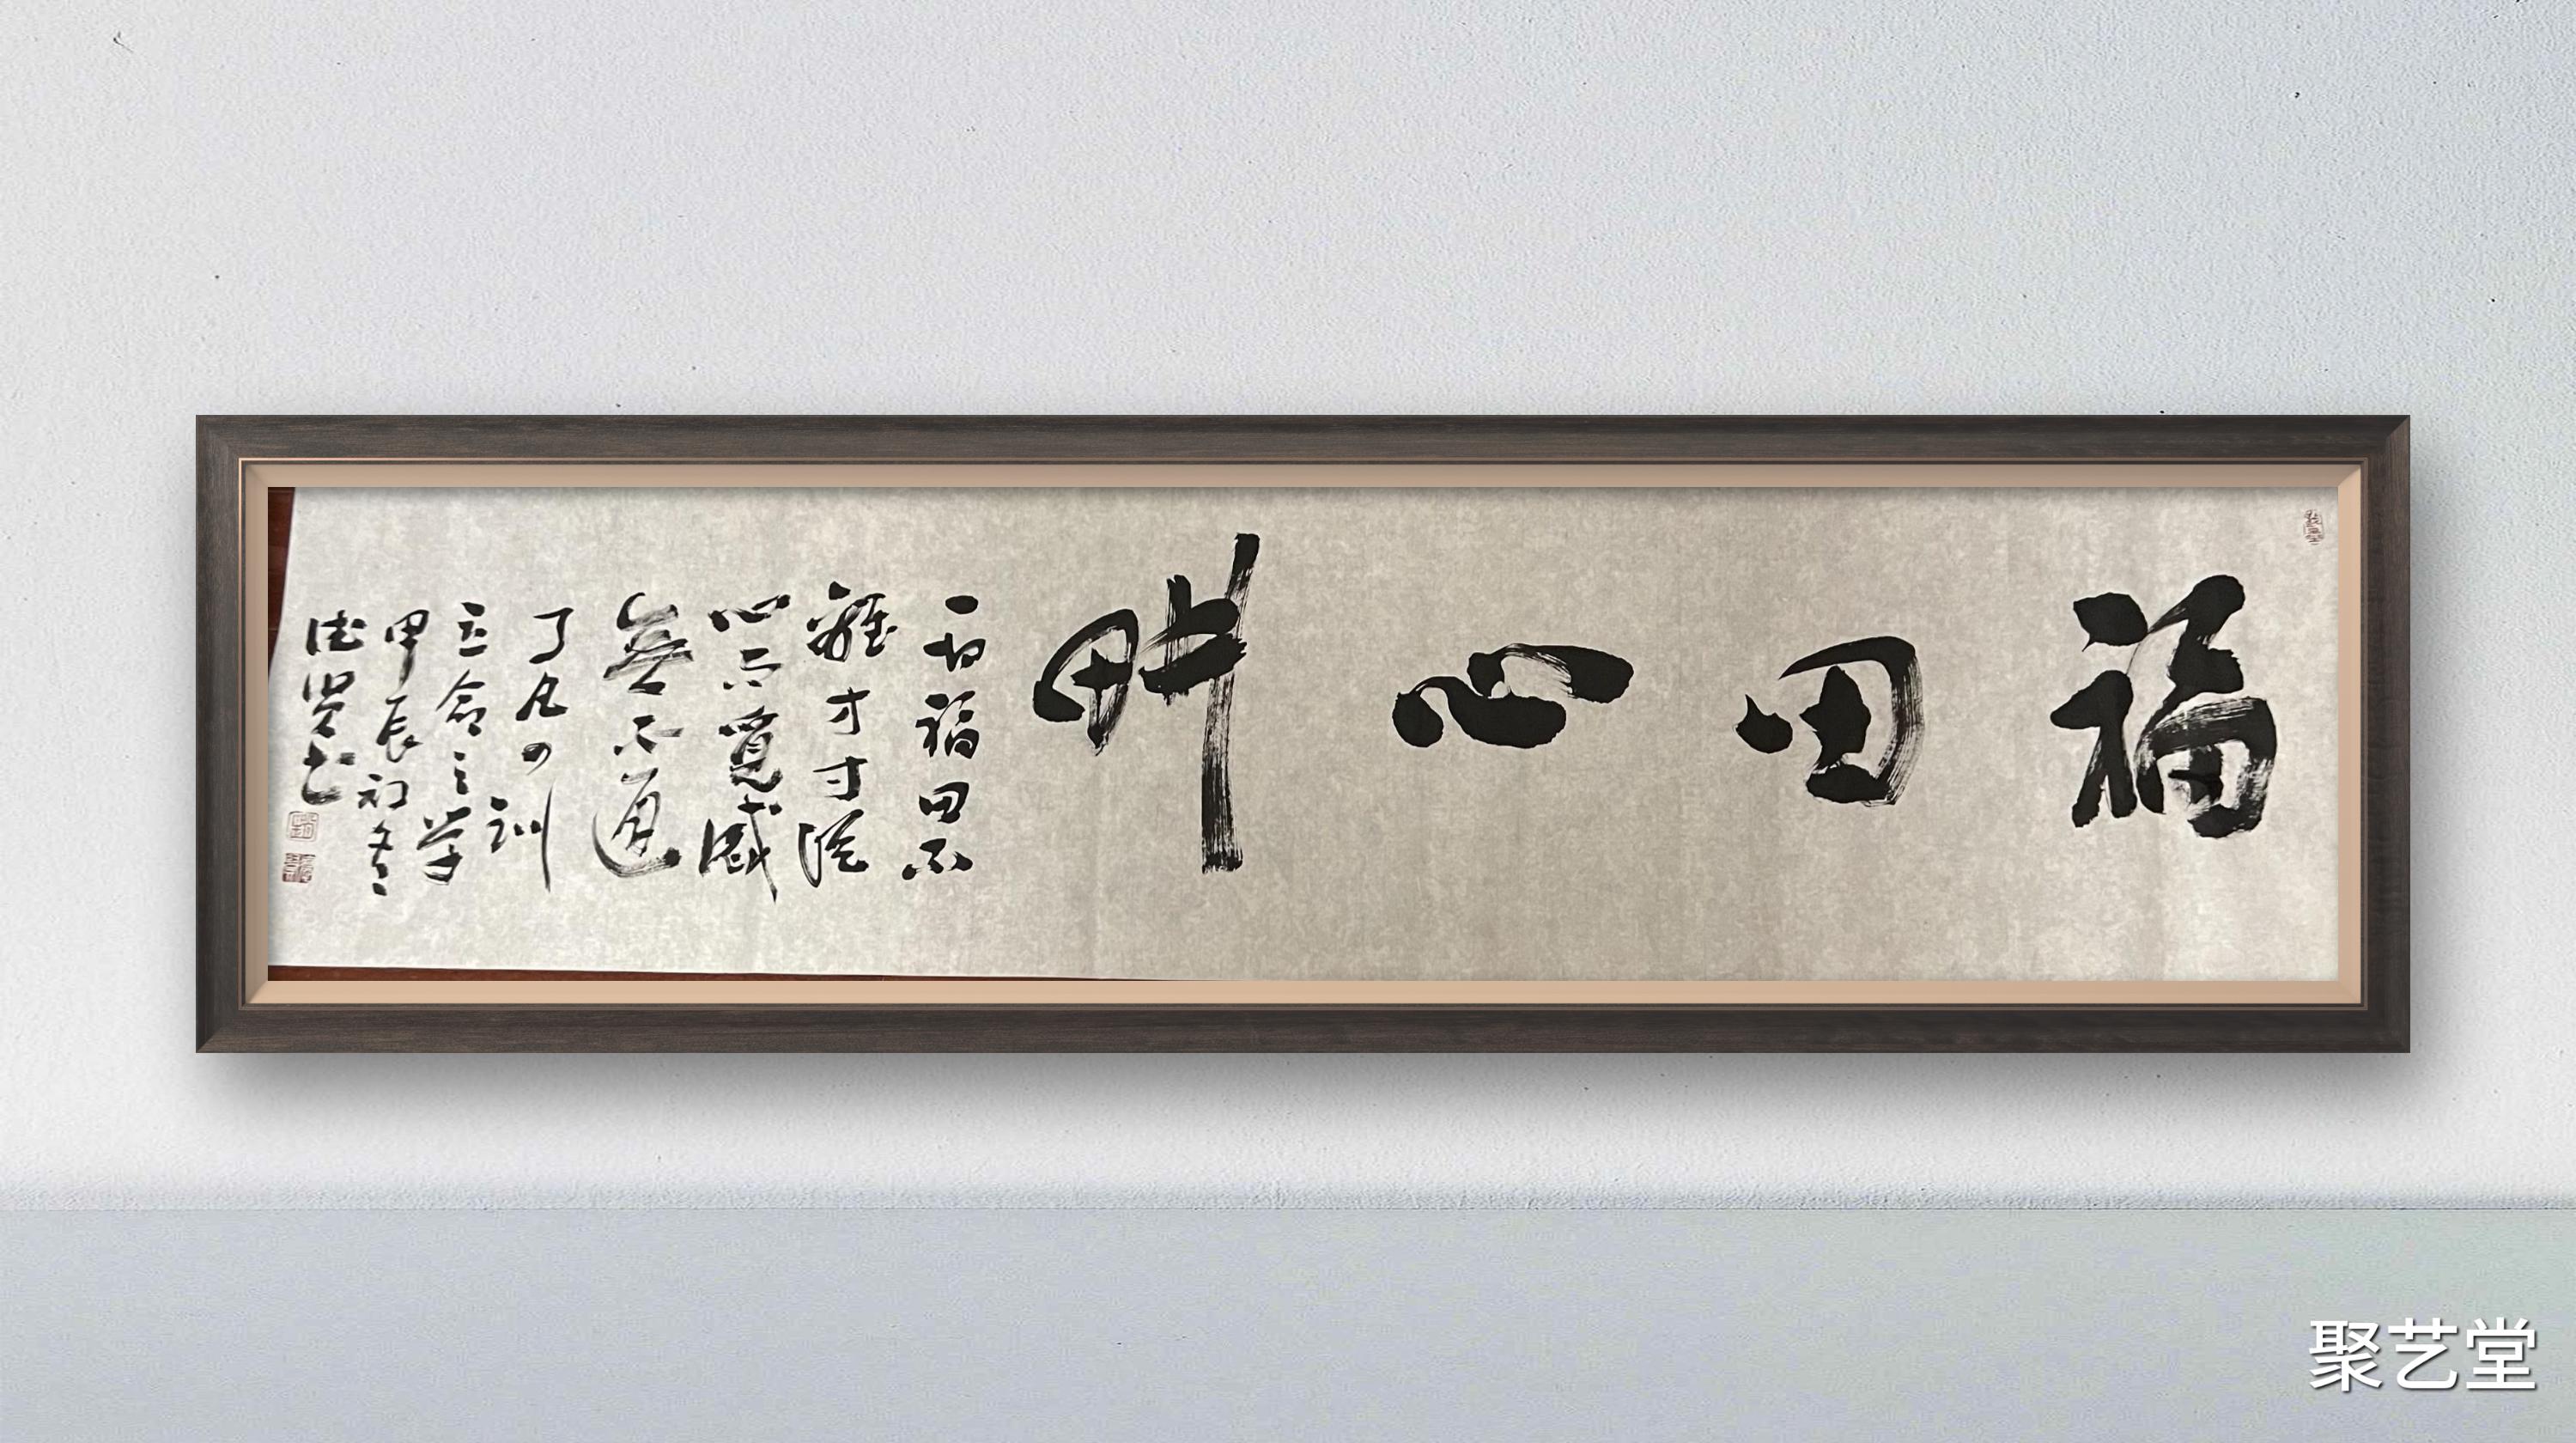 福田心耕
一切福田不
離方寸從
心而覓感
無不通
了凡四訓
立命之學
甲辰初春
德賢書
聚艺堂